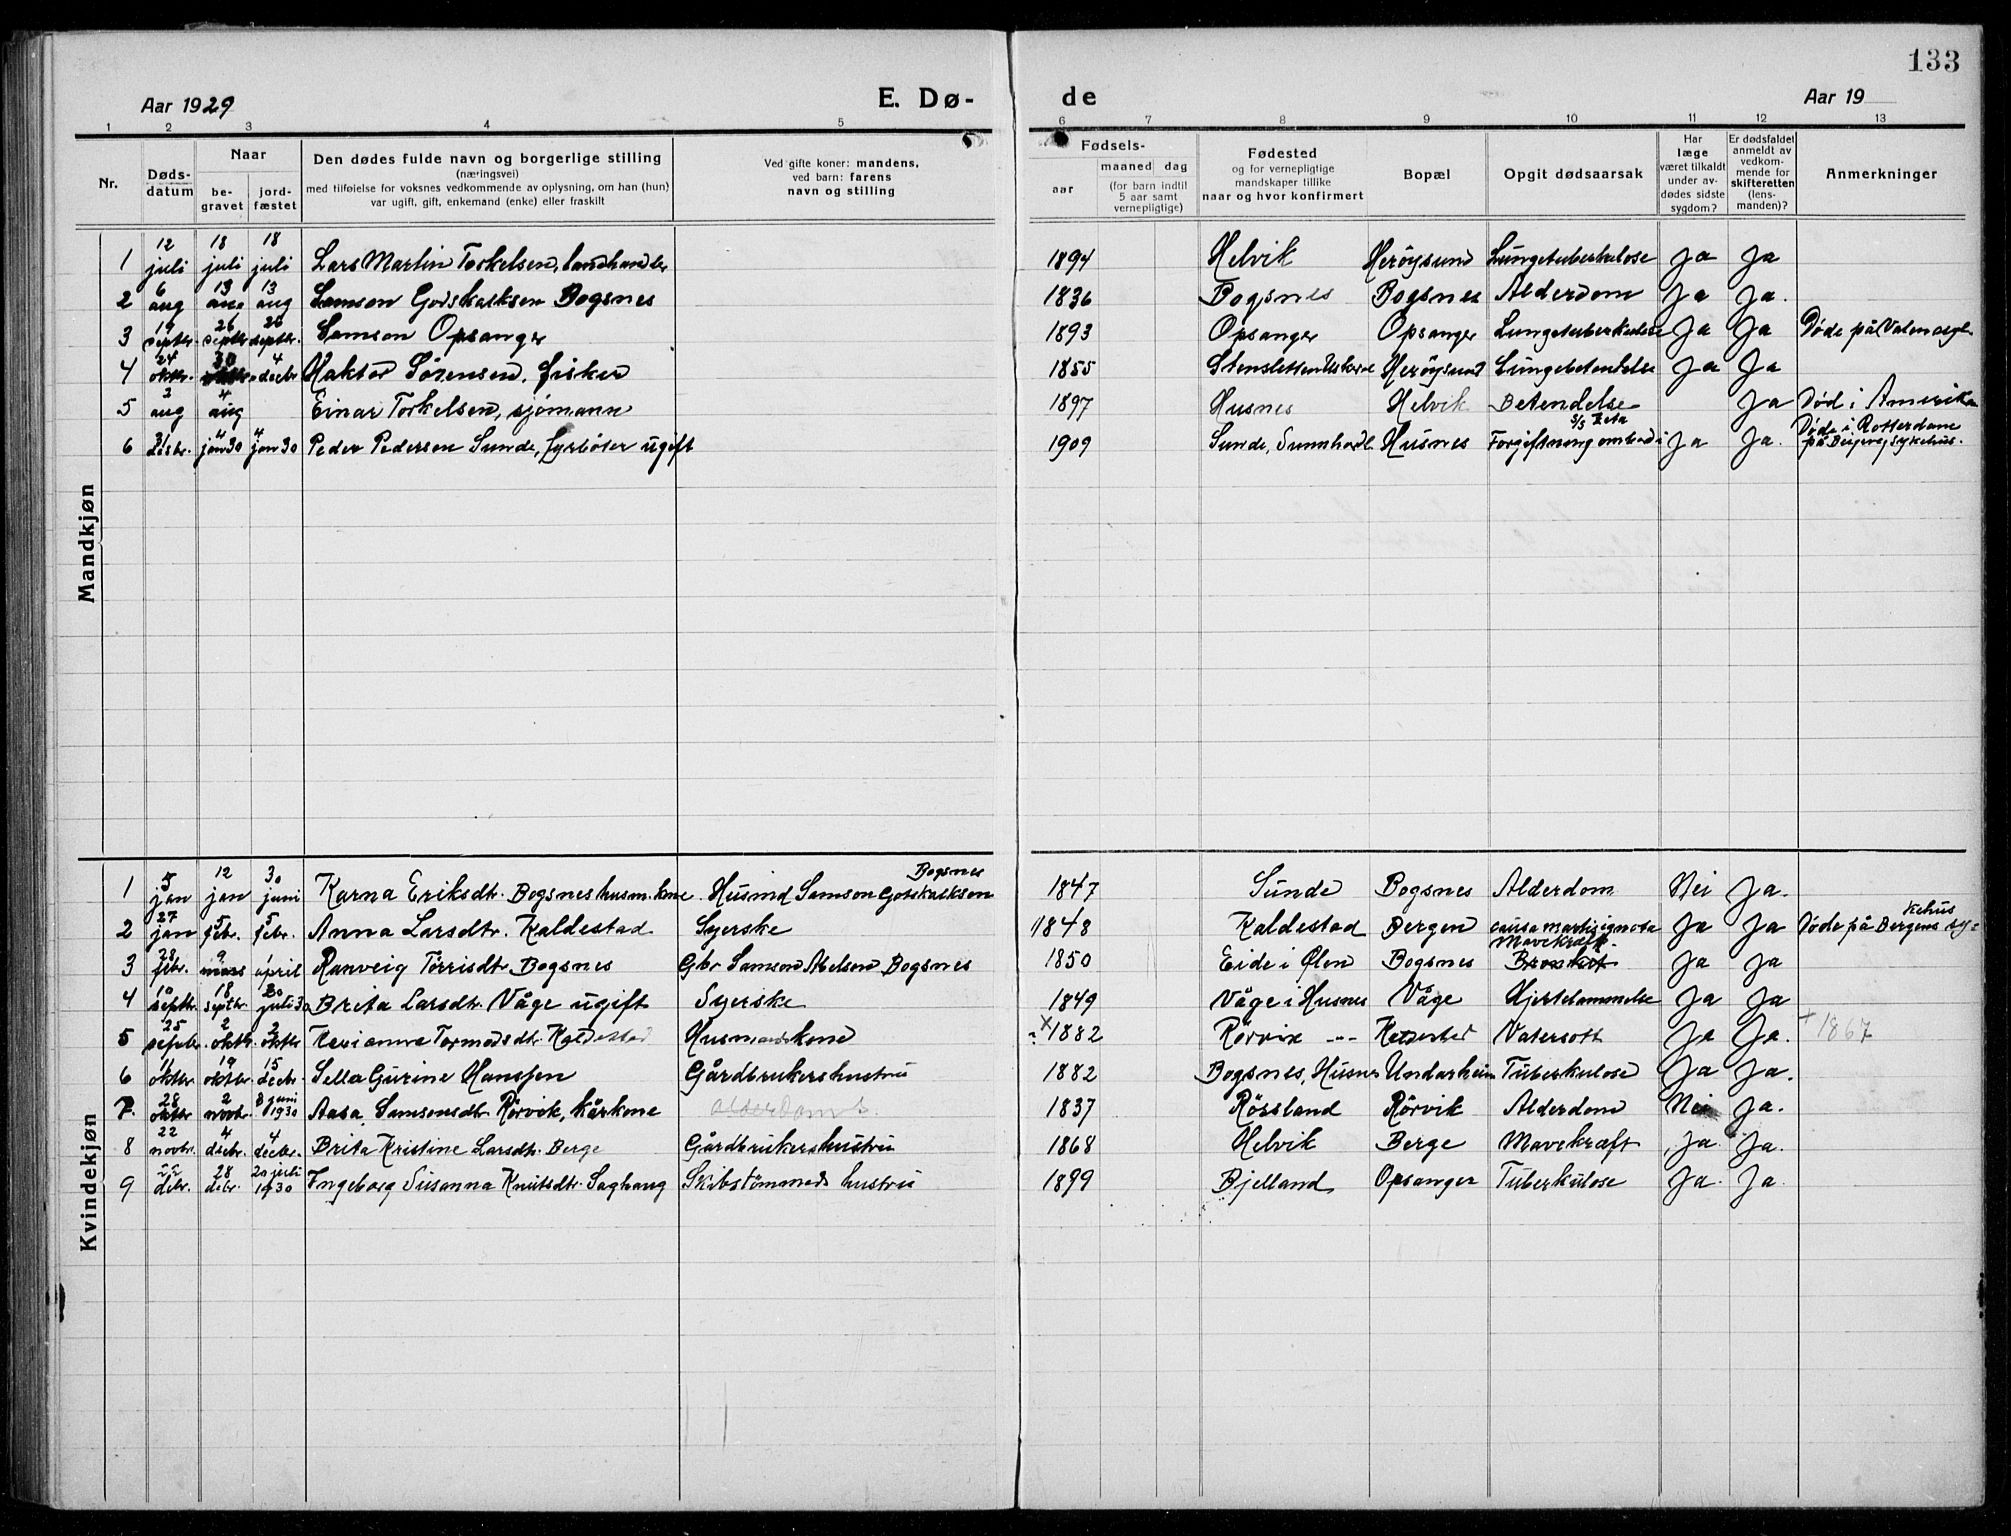 133
Aar 1929 E. Dø- de Aar 19
1 2 3 4 5 6 7 8 9 10 11 12 13
Nr. Døds-datum Naar be-gravet jord-fæstet Den dødes fulde navn og borgerlige stilling (næringsvei) med tilføielse for voksnes vedkommende av oplysning, om han (hun) var ugift, gift, enkemand (enke) eller fraskilt Ved gifte koner: mandens, ved barn: farens navn og stilling Fødsels- aar maaned dag (for barn indtil 5 aar samt vernepligtige) Fødested og for vernepligtige mandskaper tillike naar og hvor konfirmert Bopæl Opgit dødsaarsak Har læge været tilkaldt under av-dødes sidste sygdom? Er dødsfaldet anmeldt av vedkom-mende for skifteretten (lens-manden)? Anmerkninger
Mandkjøn
1 12 juli 18 juli 18 juli Lars Martin Torkelsen, landhandler 1894 Helvik Herøysund Lungetuberkulose Ja Ja
2 6 aug 13 aug 13 aug Samson Godskalksen Bogsnes 1836 Bogsnes Bogsnes Alderdom Ja Ja.
3 19 septbr. 26 septbr 26 septbr. Samson Opsanger 1893 Opsanger Opsanger Lungetuberkulose Ja Ja Døde på Valen
4 24 oktbr. 30 oktbr. 4 decbr Haktor Sørensen, fisker 1855 Herøysund Lungebetendelse Ja Ja
5 2 aug 4 aug Einar Torkelsen, sjømann 1897 Husnes Helvik Betendelse Ja Død i Amerika
6 31 desbr. 4 jan 30 4 jan 30 Peder Pedersen Sunde, fyrbøter ugift 1909 Sunde, Sunnhordl. Husnes Forgiftning ombord i s/s Zeta Ja Ja. Døde i Rotterdam på Bergweg sykehus.
Kvindekjøn
1 5 jan 12 jan 30 juni Karna Eriksdtr. Bogsnes husm. kone Husmd Samson Gotskalkson Bogsnes 1847 Sunde Bogsnes Alderdom Nei Ja.
2 27 jan 5 febr. 5 febr. Anna Larsdtr. Kaldestad Syerske 1848 Kaldestad Bergen causa mortis ignota Ja Ja Døde på Bergens sykehus
3 28 febr. 9 mars 1 april Ranveig Tørrisdtr. Bogsnes Gbr Samson Abelsen Bogsnes 1850 Eide i Ølen Bogsnes Mavekræft. Ja Ja
4 10 septbr 18 septbr 20 juli 30 Brita Larsdtr. Våge ugift Syerske 1849 Våge i Husnes Våge Hjertelammelse Ja Ja
5 25 septbr. 2 oktbr. 2 oktbr Tormodsdtr. Kaldestad Husmandskone x 1882 Rørvik --- Kaldestad Vatersott Ja Ja. + 1867
6 11 oktbr 19 oktbr. 15 decbr. Sella Gurine Hanssen Gårdbrukershustru 1882 Bogsnes, Husnes Undarheim Tuberkulose Ja Ja.
7. 28 oktbr 2 novbr. 8 juni 1930 Aasa Samsonsdtr. Rørvik, kårkone 1837 Røssland Rørvik Alderdom Nei Ja.
8 22 novbr. 4 decbr. 4 decbr. Brita Kristine Larsdtr. Berge Gårdbrukershustru 1868 Helvik Berge Mavekræft Ja. Ja.
9 22 dcbr. 28 dcbr. 20 juli 1930 Ingeborg Susanna Knutsdtr. Saghaug Skibstømmeds hustru 1899 Bjelland Opsanger Tuberkulose Ja. Ja.